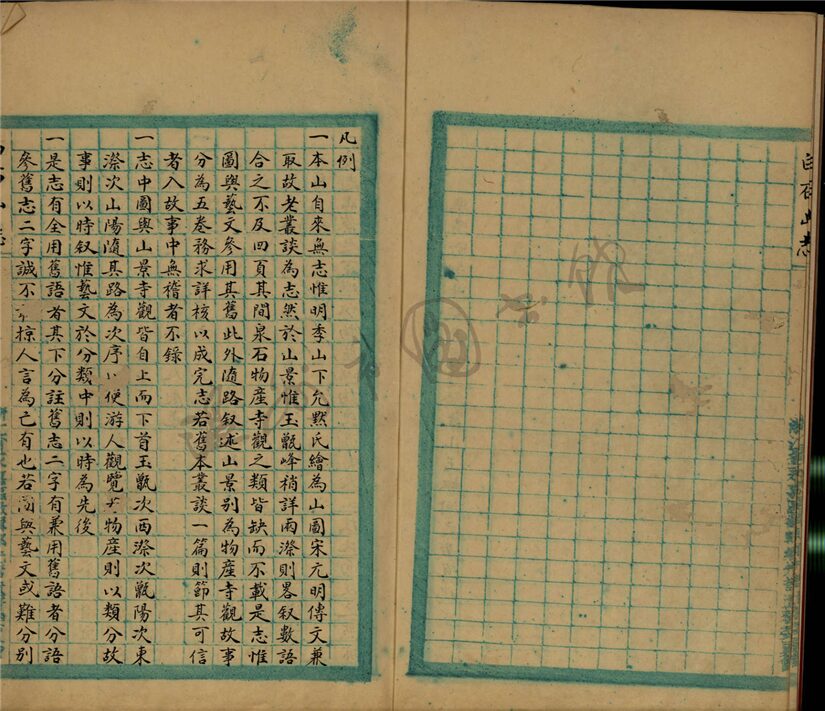 白石山志
凡例
一本山自來無志惟明季山下允默氏繪為山圖宋元明傳文兼
取故老叢談為志然於山景惟玉甑峰稍詳兩漈則畧叙數語
合之不及四頁其間泉石物產寺觀之類皆缺而不載是志惟
圖與藝文參用其舊此外隨路叙述山景別為物產寺觀故事
分為五卷務求詳核以成完志若舊本叢談一篇則節其可信
者入故事中無稽者不錄
一志中圖與山景寺觀皆自上而下首玉甑次西漈次甑陽次東
漈次山陽隨其路為次序以便游人觀覽其物產則以類分故
事則以時叙惟藝文於分類中則以時為先後
一是志有全用舊語者其下分註舊志二字有兼用舊語者分語
參舊志二字誠不掠人言為己有也若圖與藝文或難分別